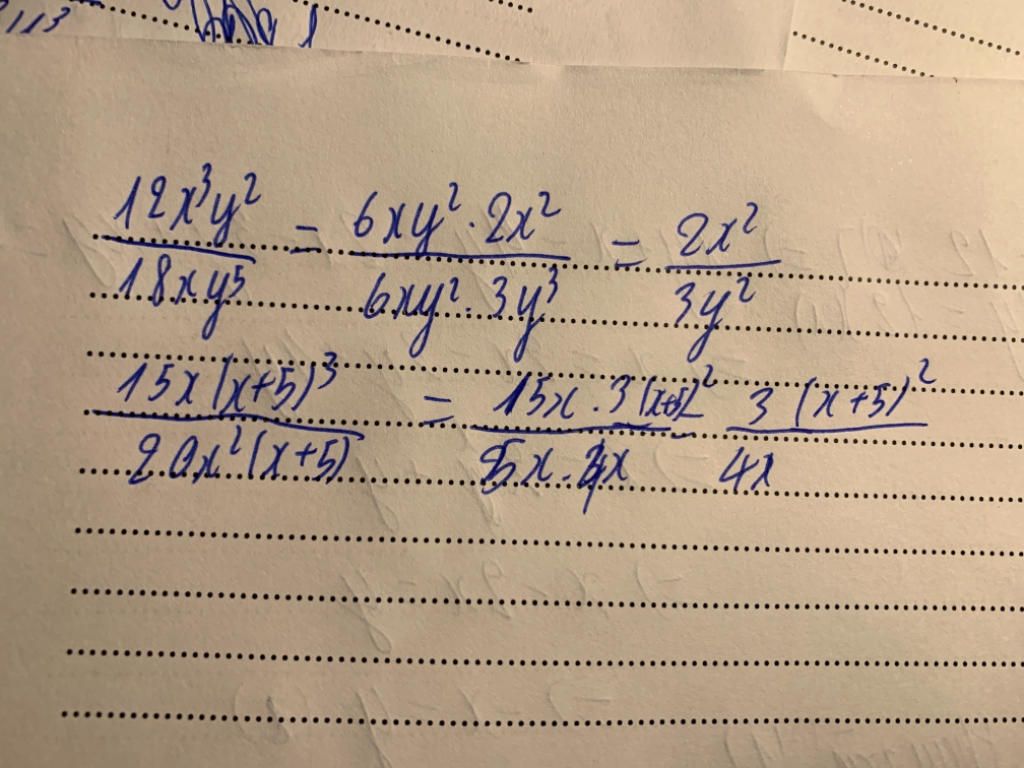 113
12x³y² / 18xy⁵ = 6xy² · 2x² / 6xy² · 3y³ = 2x² / 3y²
15x(x+5)³ / 20x²(x+5) = 15x · 3(x+5)² / 5x · 4x 3(x+5)² / 4x